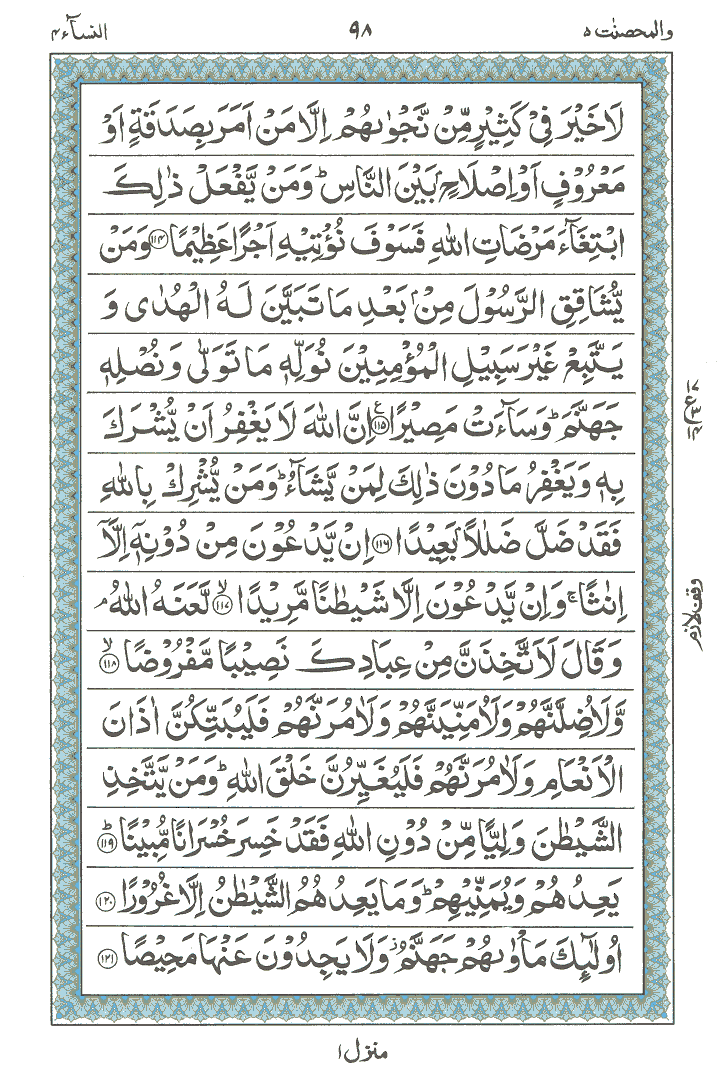 والمحصنٰت ٥ ٩٨ النسآء ٤
لَا خَيْرَ فِيْ كَثِيْرٍ مِّنْ نَّجْوٰىهُمْ اِلَّا مَنْ اَمَرَ بِصَدَقَةٍ اَوْ
مَعْرُوْفٍ اَوْ اِصْلَاحٍۭ بَيْنَ النَّاسِ ؕ وَمَنْ يَّفْعَلْ ذٰلِكَ
ابْتِغَآءَ مَرْضَاتِ اللّٰهِ فَسَوْفَ نُؤْتِيْهِ اَجْرًا عَظِيْمًا ﴿١١٤﴾ وَمَنْ
يُّشَاقِقِ الرَّسُوْلَ مِنْۢ بَعْدِ مَا تَبَيَّنَ لَهُ الْهُدٰى وَ
يَتَّبِعْ غَيْرَ سَبِيْلِ الْمُؤْمِنِيْنَ نُوَلِّهٖ مَا تَوَلّٰى وَنُصْلِهٖ
جَهَنَّمَ ؕ وَسَآءَتْ مَصِيْرًا ﴿١١٥﴾ ع اِنَّ اللّٰهَ لَا يَغْفِرُ اَنْ يُّشْرَكَ
بِهٖ وَيَغْفِرُ مَا دُوْنَ ذٰلِكَ لِمَنْ يَّشَآءُ ؕ وَمَنْ يُّشْرِكْ بِاللّٰهِ
فَقَدْ ضَلَّ ضَلٰلًاۢ بَعِيْدًا ﴿١١٦﴾ اِنْ يَّدْعُوْنَ مِنْ دُوْنِهٖٓ اِلَّآ
اِنٰثًا ۚ وَاِنْ يَّدْعُوْنَ اِلَّا شَيْطٰنًا مَّرِيْدًا ﴿١١٧﴾ ۙ لَّعَنَهُ اللّٰهُ ۘ
وَقَالَ لَاَتَّخِذَنَّ مِنْ عِبَادِكَ نَصِيْبًا مَّفْرُوْضًا ﴿١١٨﴾ ۙ
وَّلَاُضِلَّنَّهُمْ وَلَاُمَنِّيَنَّهُمْ وَلَاٰمُرَنَّهُمْ فَلَيُبَتِّكُنَّ اٰذَانَ
الْاَنْعَامِ وَلَاٰمُرَنَّهُمْ فَلَيُغَيِّرُنَّ خَلْقَ اللّٰهِ ؕ وَمَنْ يَّتَّخِذِ
الشَّيْطٰنَ وَلِيًّا مِّنْ دُوْنِ اللّٰهِ فَقَدْ خَسِرَ خُسْرَانًا مُّبِيْنًا ﴿١١٩﴾ ؕ
يَعِدُهُمْ وَيُمَنِّيْهِمْ ؕ وَمَا يَعِدُهُمُ الشَّيْطٰنُ اِلَّا غُرُوْرًا ﴿١٢٠﴾
اُولٰٓئِكَ مَاْوٰىهُمْ جَهَنَّمُ ۫ وَلَا يَجِدُوْنَ عَنْهَا مَحِيْصًا ﴿١٢١﴾
وقف لازم
منزل ١